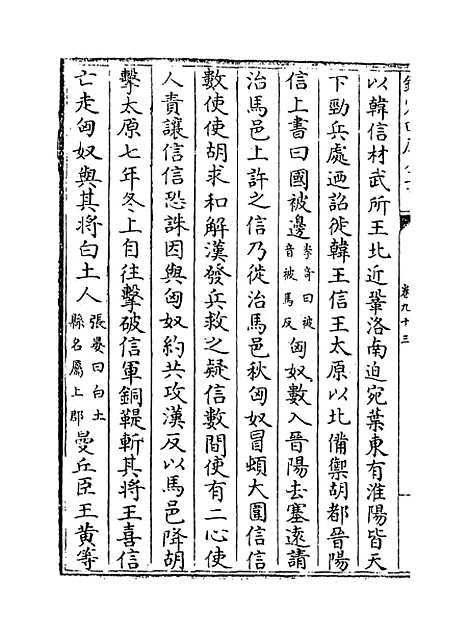 以韓信材武所王北近鞏洛南迫宛葉東有淮陽皆天
下勁兵處迺詔徙韓王信王太原以北備禦胡都晉陽
信上書曰國被邊李竒曰被音被馬反匈奴數入晉陽去塞遠請
治馬邑上許之信乃徙治馬邑秋匈奴冒頓大圍信信
數使使胡求和解漢發兵救之疑信數間使有二心使
人責讓信信恐誅因與匈奴約共攻漢反以馬邑降胡
擊太原七年冬上自往擊破信軍銅鞮斬其將王喜信
亡走匈奴與其將白土人張晏曰白土縣名屬上郡曼丘臣王黄等
卷九十三